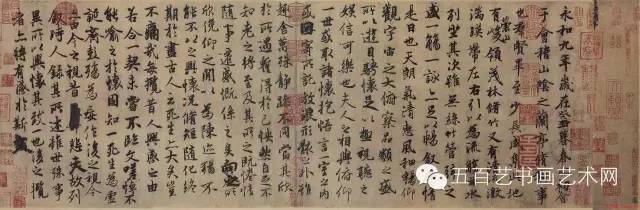 永和九年歲在癸丑暮春之初會
于會稽山陰之蘭亭脩稧事
也羣賢畢至少長咸集此地
有崇山峻領茂林脩竹又有清流激
湍暎帶左右引以為流觴曲水
列坐其次雖無絲竹管弦之
盛一觴一詠亦足以暢敘幽情
是日也天朗氣清惠風和暢仰
觀宇宙之大俯察品類之盛
所以遊目騁懷足以極視聽之
娛信可樂也夫人之相與俯仰
一世或取諸懷抱悟言一室之內
或因寄所託放浪形骸之外雖
趣舍萬殊靜躁不同當其欣
於所遇暫得於己怏然自足不
知老之將至及其所之既惓情
隨事遷感慨係之矣向之所
欣俛仰之閒以為陳迹猶不
能不以之興懷況脩短隨化終
期於盡古人云死生亦大矣豈
不痛哉每攬昔人興感之由
若合一契未嘗不臨文嗟悼不
能喻之於懷固知一死生為虛
誕齊彭殤為妄作後之視今
亦由今之視昔悲夫故列
敘時人錄其所述雖世殊事
異所以興懷其致一也後之攬
者亦將有感於斯文
五百艺书画艺术网